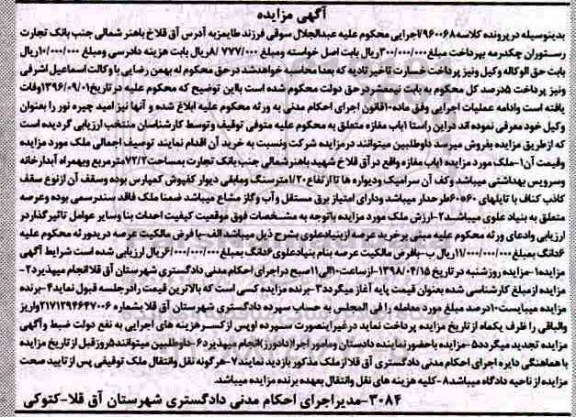 آگهی مزایده
بدینوسیله در پرونده کلاسه ۹۶۰۰۶۸/اجرایی محکوم علیه عبدالجلال سوقی فرزند طایمزبه آدرس آق قلاخ باهنر شمالی جنب بانک تجارت
رستوران چکدرمه بپرداخت مبلغ ۳۰۰/۰۰۰/۰۰۰ریال بابت اصل خواسته ومبلغ ۸/۷۷۷/۰۰۰ریال بابت هزینه دادرسی ومبلغ ۱۰/۰۰۰/۰۰۰ریال
بابت حق الوکاله وکیل ونیز پرداخت خسارت تاخیر تادیه که بعدا محاسبه خواهدشد درحق محکوم له بهمن رضایی با وکالت اسماعیل اشرفی
ونیز پرداخت ۵درصد کل محکوم به بابت نیمعشردرحق دولت محکوم شده است بااین توضیح که محکوم علیه درتاریخ ۱۳۹۶/۰۹/۰۱وفات
یافته است وادامه عملیات اجرایی وفق ماده ۱۰قانون اجرای احکام مدنی به ورثه محکوم علیه ابلاغ شده و آنها نیز امید چیره نور را بعنوان
وکیل خود معرفی نموده اند دراین راستا ۱باب مغازه متعلق به محکوم علیه متوفی توقیف وتوسط کارشناسان منتخب ارزیابی گردیده است
که ازطریق مزایده بفروش میرسد داوطلبین میتوانند درمزایده شرکت ونسبت به خرید آن اقدام نمایند توصیف اجمالی ملک مورد مزایده
وقیمت آن۱-ملک مورد مزایده ۱باب مغازه واقع در آق قلاخ شهید باهنرشمالی جنب بانک تجارت بمساحت۷۲/۲مترمربع وبهمراه آبدارخانه
وسرویس بهداشتی میباشد وکف آن سرامیک ودیواره ها تاارتفاع۱/۲۰مترسنگ ومابقی دیوار کفپوش کمپارس بوده وسقف آن ازنوع سقف
کاذب کناف با تایلهای ۶۰*۶۰طرحدار میباشد ودارای امتیاز برق مستقل وآب وگاز مشاع میباشد ضمنا ملک فاقد سندرسمی بوده وعرصه
متعلق به بنیاد علوی میباشد.۲-ارزش ملک مورد مزایده باتوجه به مشخصات فوق موقعیت کیفیت احداث بنا وسایر عوامل تاثیرگذاردر
ارزیابی وادعای ورثه محکوم علیه مبنی برخرید عرصه ازبنیادعلوی بشرح ذیل میباشد الف-با فرض مالکیت عرصه در یدورثه محکوم علیه
۶دانگ بمبلغ ۱۱/۰۰۰/۰۰۰/۰۰۰ریال ب-بافرض مالکیت عرصه بنام بنیادعلوی ۶دانگ بمبلغ ۶/۰۰۰/۰۰۰/۰۰۰ریال ارزیابی شده است شرایط آگهی
مزایده۱-مزایده روزشنبه در تاریخ ۱۳۹۸/۰۴/۱۵ -ازساعت۱۰الی۱۱صبح دراجرای احکام مدنی دادگستری شهرستان آق قلاانجام میپذیرد۲-
مزایده ازمبلغ کارشناسی شده بعنوان قیمت پایه آغاز میگردد۳-برنده مزایده کسی است که بالاترین قیمت رادرجلسه قبول نماید۴-برنده
مزایده میبایست۱۰درصد مبلغ مورد معامله را فی المجلس به حساب سپرده دادگستری شهرستان آق قلا بشماره ۲۱۷۱۲۹۴۶۴۷۰۰۶واریز
والباقی را ظرف یکماه از تاریخ مزایده پرداخت نماید درغیراینصورت سپرده اوپس ازکسر هزینه های اجرایی به نفع دولت ضبط وآگهی
مزایده تجدید میگردد۵-مزایده باحضورنماینده دادستان ومامور اجرا(دادورز)انجام میپذیرد۶-داوطلبین میتوانند۵روزقبل ازتاریخ مزایده
با هماهنگی دایره اجرای احکام مدنی دادگستری آق قلا ازملک مذکور بازدید نمایند۷-هرگونه نقل وانتقال ملک توقیفی پس ازتایید صحت
مزایده از ناحیه دادگاه میباشد۸-کلیه هزینه های نقل وانتقال بعهده برنده مزایده میباشد.
۳۰۸۴-مدیراجرای احکام مدنی دادگستری شهرستان آق قلا-کتوکی